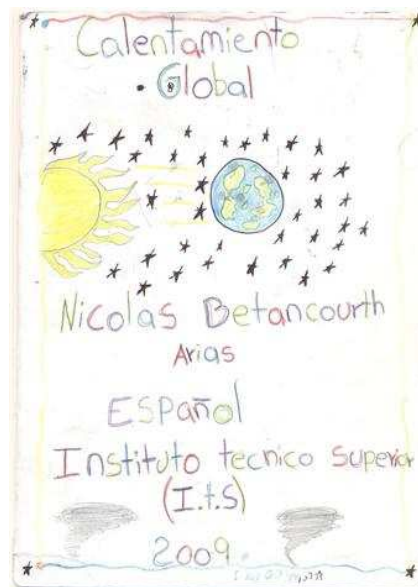 Calentamiento
• Global
Nicolas Betancourth
Arias
ESPañol
Instituto tecnico Superior
(I.t.S)
2009.